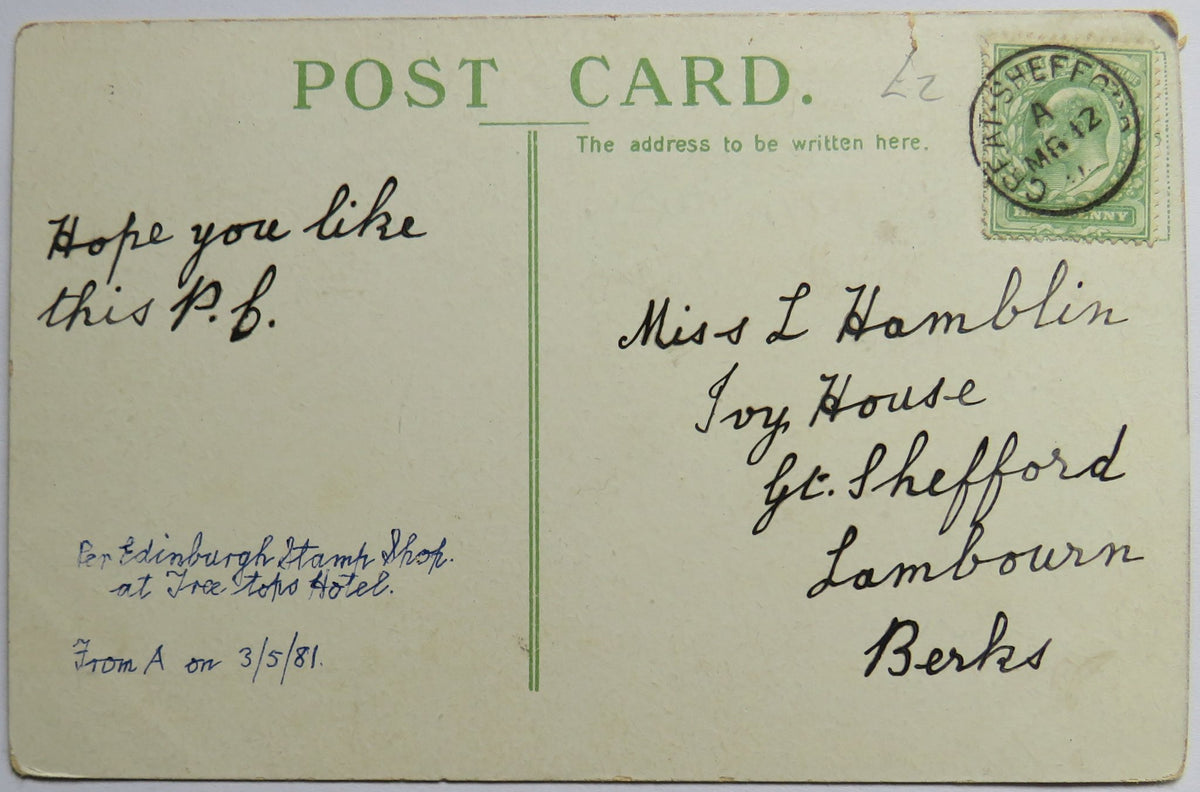 POST CARD.
£2
The address to be written here.
GREAT SHEFFORD
A
MR 12
HALFPENNY
Hope you like
this P.C.
Miss L Hamblin
Ivy House
Gt. Shefford
Lambourn
Berks
Per Edinburgh Stamp Shop.
at Tree tops Hotel.
From A on 3/5/81.